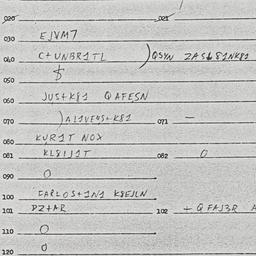 020 021
030 EJVM7
040 C+UNBR1TL )QSYN ZAS+81NK81
050 $
060 JUS+K81 QAFESN
070 )AL1VE4S+K81 071 —
080 KUR1T NOX
081 KL8IJ1T 082 0
090 0
100 CARLOS+1N1 K8EJLN
101 PZ+AR 102 + QFAJ3R A
110 0
120 0